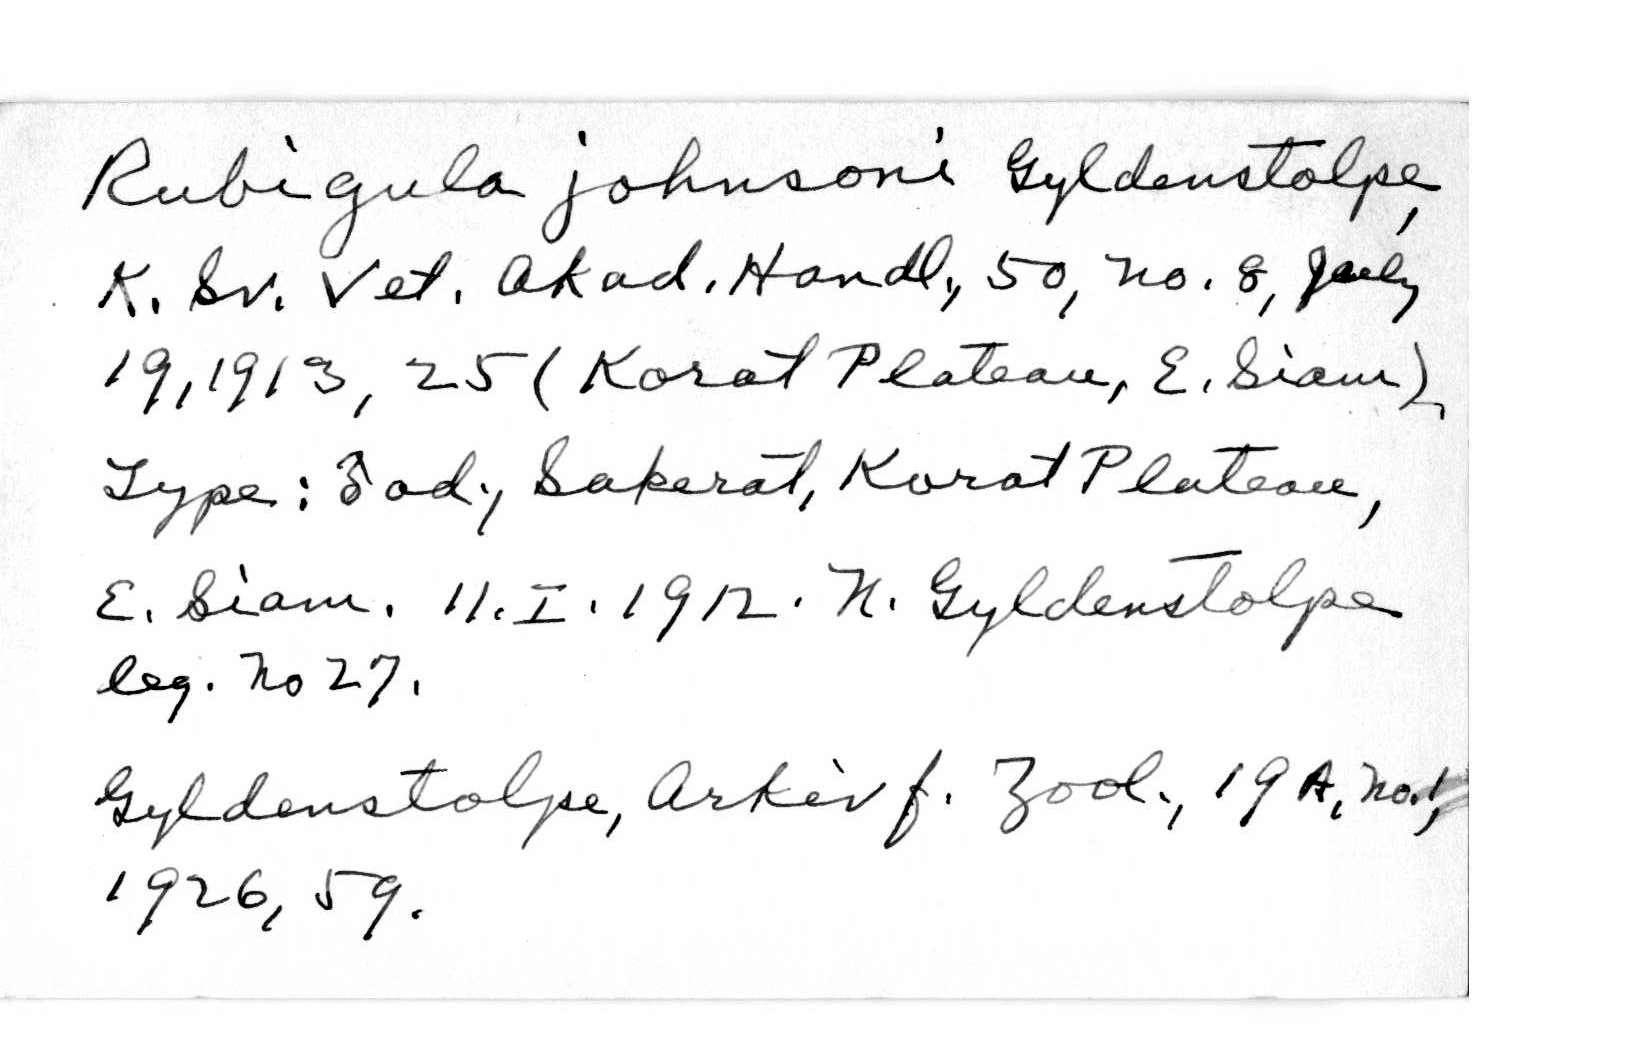 Rubigula johnsoni Gyldenstolpe,
K. Sv. Vet. Akad. Handl., 50, no. 8, July
19, 1913, 25 (Korat Plateau, E. Siam).
Type: ♂ ad., Sakerat, Korat Plateau,
E. Siam. 11. I. 1912. N. Gyldenstolpe
leg. No 27.
Gyldenstolpe, Arkiv f. Zool., 19A, no. 1,
1926, 59.